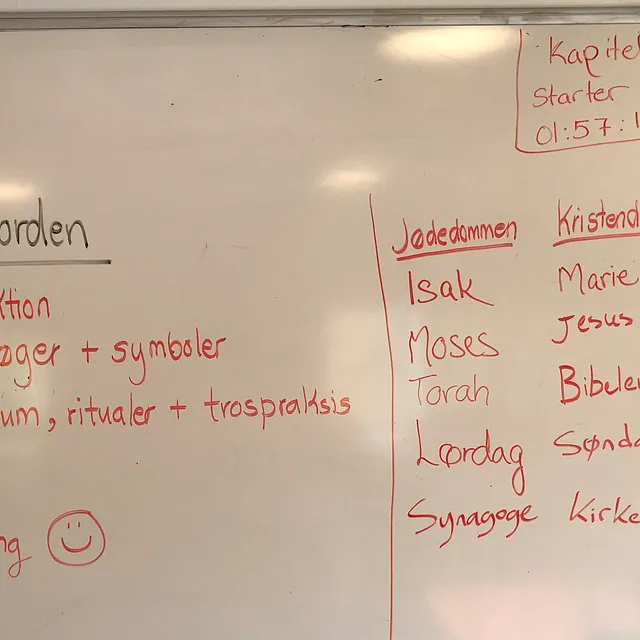 Kapitel
Starter
01:57:1
orden
ktion
øger + symboler
um, ritualer + trospraksis
ng
Jødedommen
Isak
Moses
Torah
Lørdag
Synagoge
Kristend
Marie
Jesus
Bibelen
Sønda
Kirke